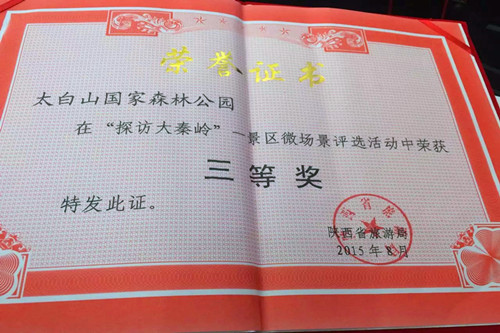 荣誉证书
太白山国家森林公园
在“探访大秦岭”—景区微场景评选活动中荣获
三等奖
特发此证。
陕西省旅游局
2015年8月